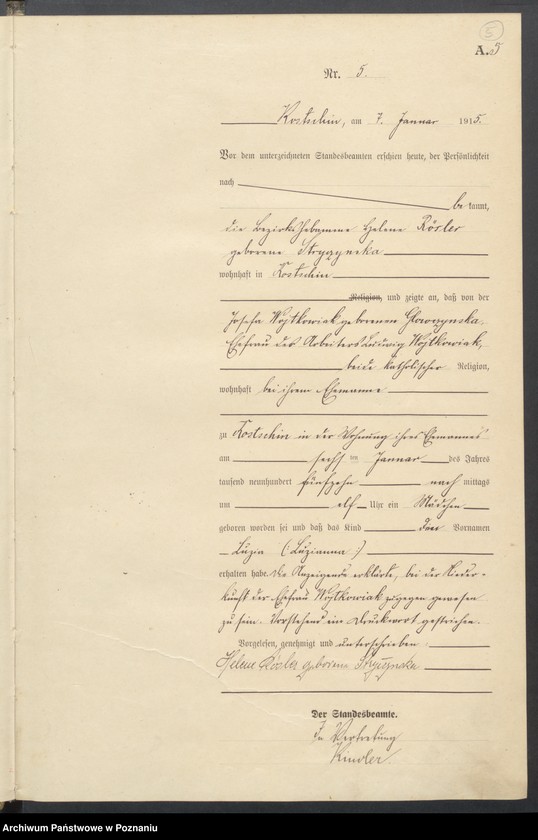 5
A. 5
Nr. 5.
Kostschin, am 7. Januar 1915.
Vor dem unterzeichneten Standesbeamten erschien heute, der Persönlichkeit
nach
be kannt,
die Bezirkshebamme Helene Rösler
geborene Stryzynska
wohnhaft in Kostschin
Religion, und zeigte an, daß von der
Josefa Wojtkowiak geborenen Glowczynska,
Ehefrau des Arbeiters Ludwig Wojtkowiak,
beide katholischer Religion,
wohnhaft bei ihrem Ehemanne
zu Kostschin in der Wohnung ihres Ehemannes
am sechsten Januar des Jahres
tausend neunhundert fünfzehn nach mittags
um elf Uhr ein Mädchen
geboren worden sei und daß das Kind Vornamen
Luzia (Luzianna :)
erhalten habe. Die Anzeigende erklärte, bei der Nieder-
kunft der Ehefrau Wojtkowiak zugegen gewesen
zu sein. Vorstehend ein Druckwort gestrichen.
Vorgelesen, genehmigt und unterschrieben
Helene Rösler geborene Stryzynska
Der Standesbeamte.
In Vertretung
Kindler
Archiwum Państwowe w Poznaniu